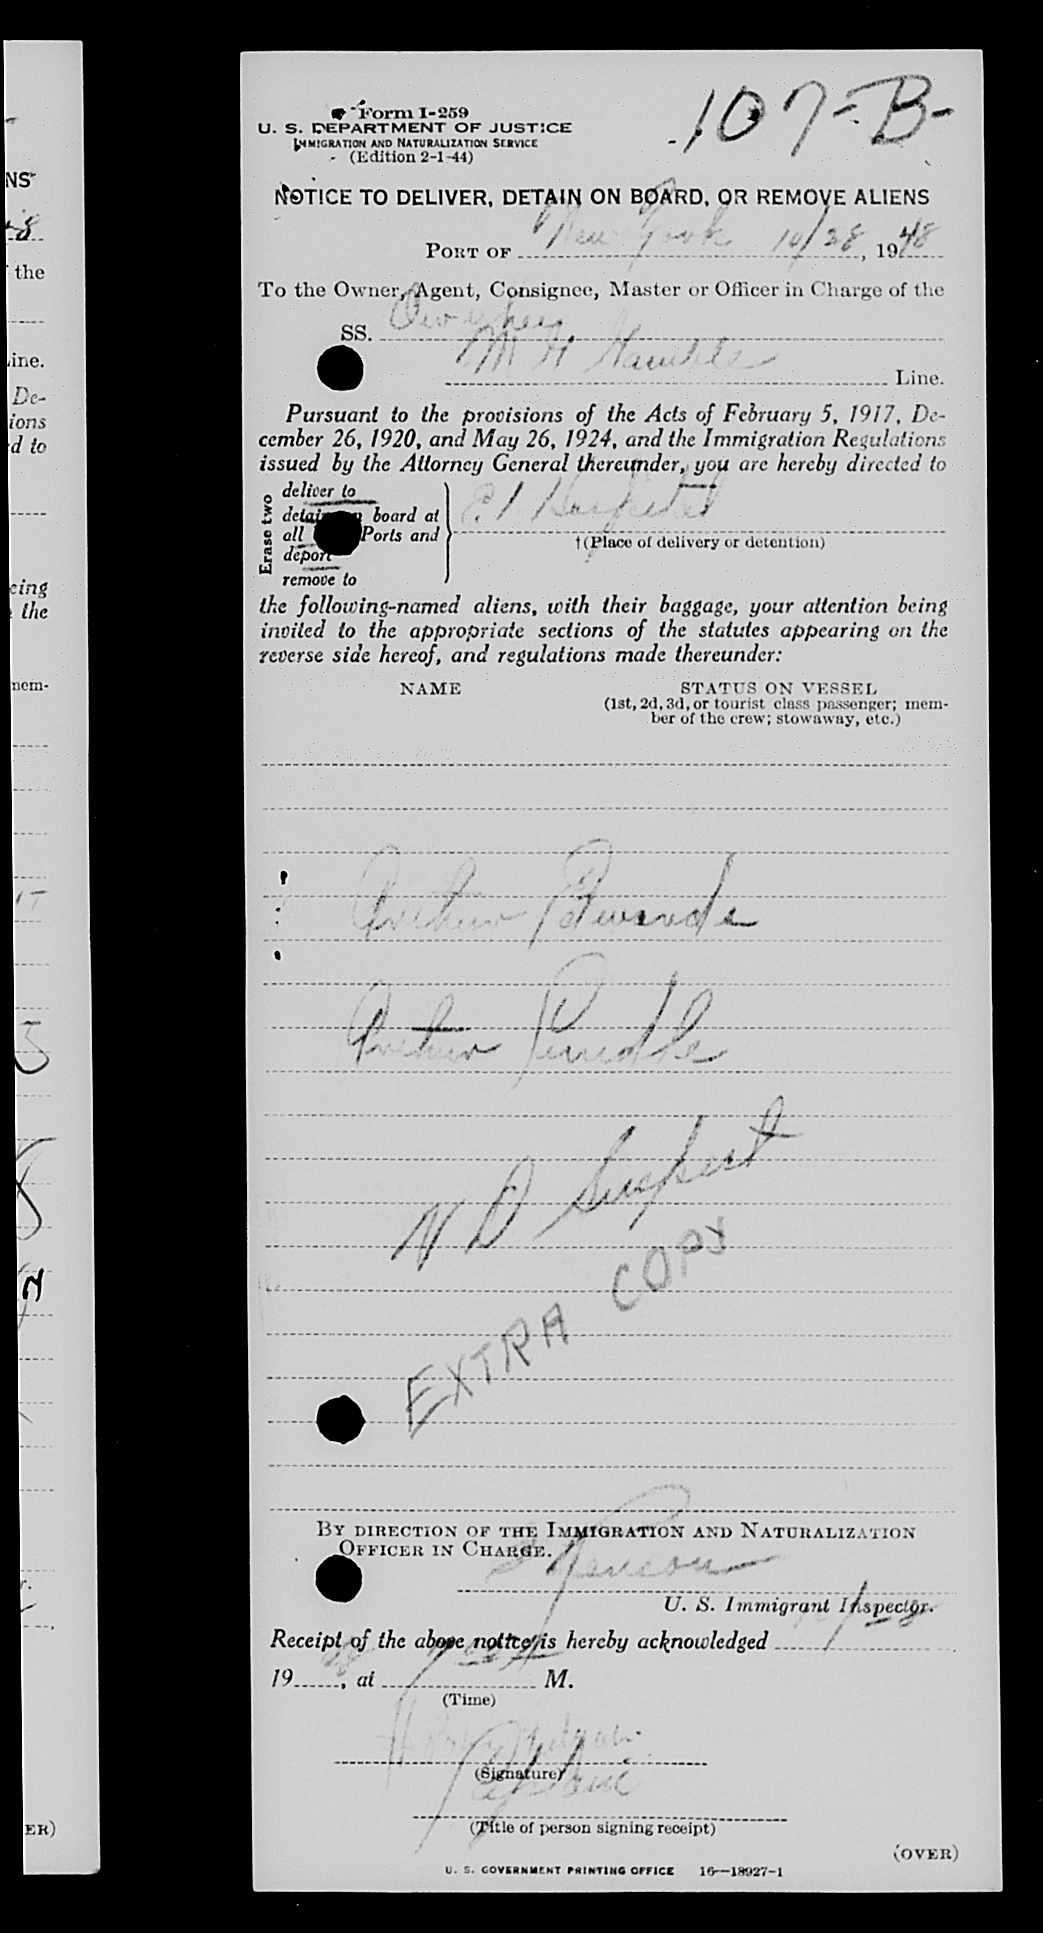 Form I-259
107-B-
U. S. DEPARTMENT OF JUSTICE
IMMIGRATION AND NATURALIZATION SERVICE
(Edition 2-1-44)
NOTICE TO DELIVER, DETAIN ON BOARD, OR REMOVE ALIENS
PORT OF New York 10/28, 1948
To the Owner, Agent, Consignee, Master or Officer in Charge of the
SS.
M H
Line.
Pursuant to the provisions of the Acts of February 5, 1917, De-
cember 26, 1920, and May 26, 1924, and the Immigration Regulations
issued by the Attorney General thereunder, you are hereby directed to
Erase two
deliver to
detain on board at
all Ports and
deport
remove to
E.I Hospital
†(Place of delivery or detention)
the following-named aliens, with their baggage, your attention being
invited to the appropriate sections of the statutes appearing on the
reverse side hereof, and regulations made thereunder:
NAME STATUS ON VESSEL
(1st, 2d, 3d, or tourist class passenger; mem-
ber of the crew; stowaway, etc.)
Arthur Edwards
Arthur
V D Suspect
EXTRA COPY
BY DIRECTION OF THE IMMIGRATION AND NATURALIZATION
OFFICER IN CHARGE.
U. S. Immigrant Inspector.
Receipt of the above notice is hereby acknowledged
19......, at M.
(Time)
(Signature)
Captain
(Title of person signing receipt)
(OVER)
U. S. GOVERNMENT PRINTING OFFICE 16—18927-1
NS
the
ine.
De-
ions
d to
eing
the
mem-
ER)